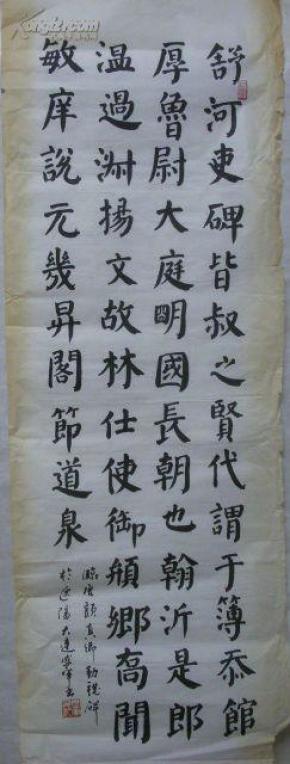 舒河吏碑皆叔之賢代謂于簿忝館
厚魯尉大庭明國長朝也翰沂是郎
温過渊揚文故林仕使御頠鄉高聞
敏庠說元幾昇閣節道泉
臨唐顏真卿勤禮碑